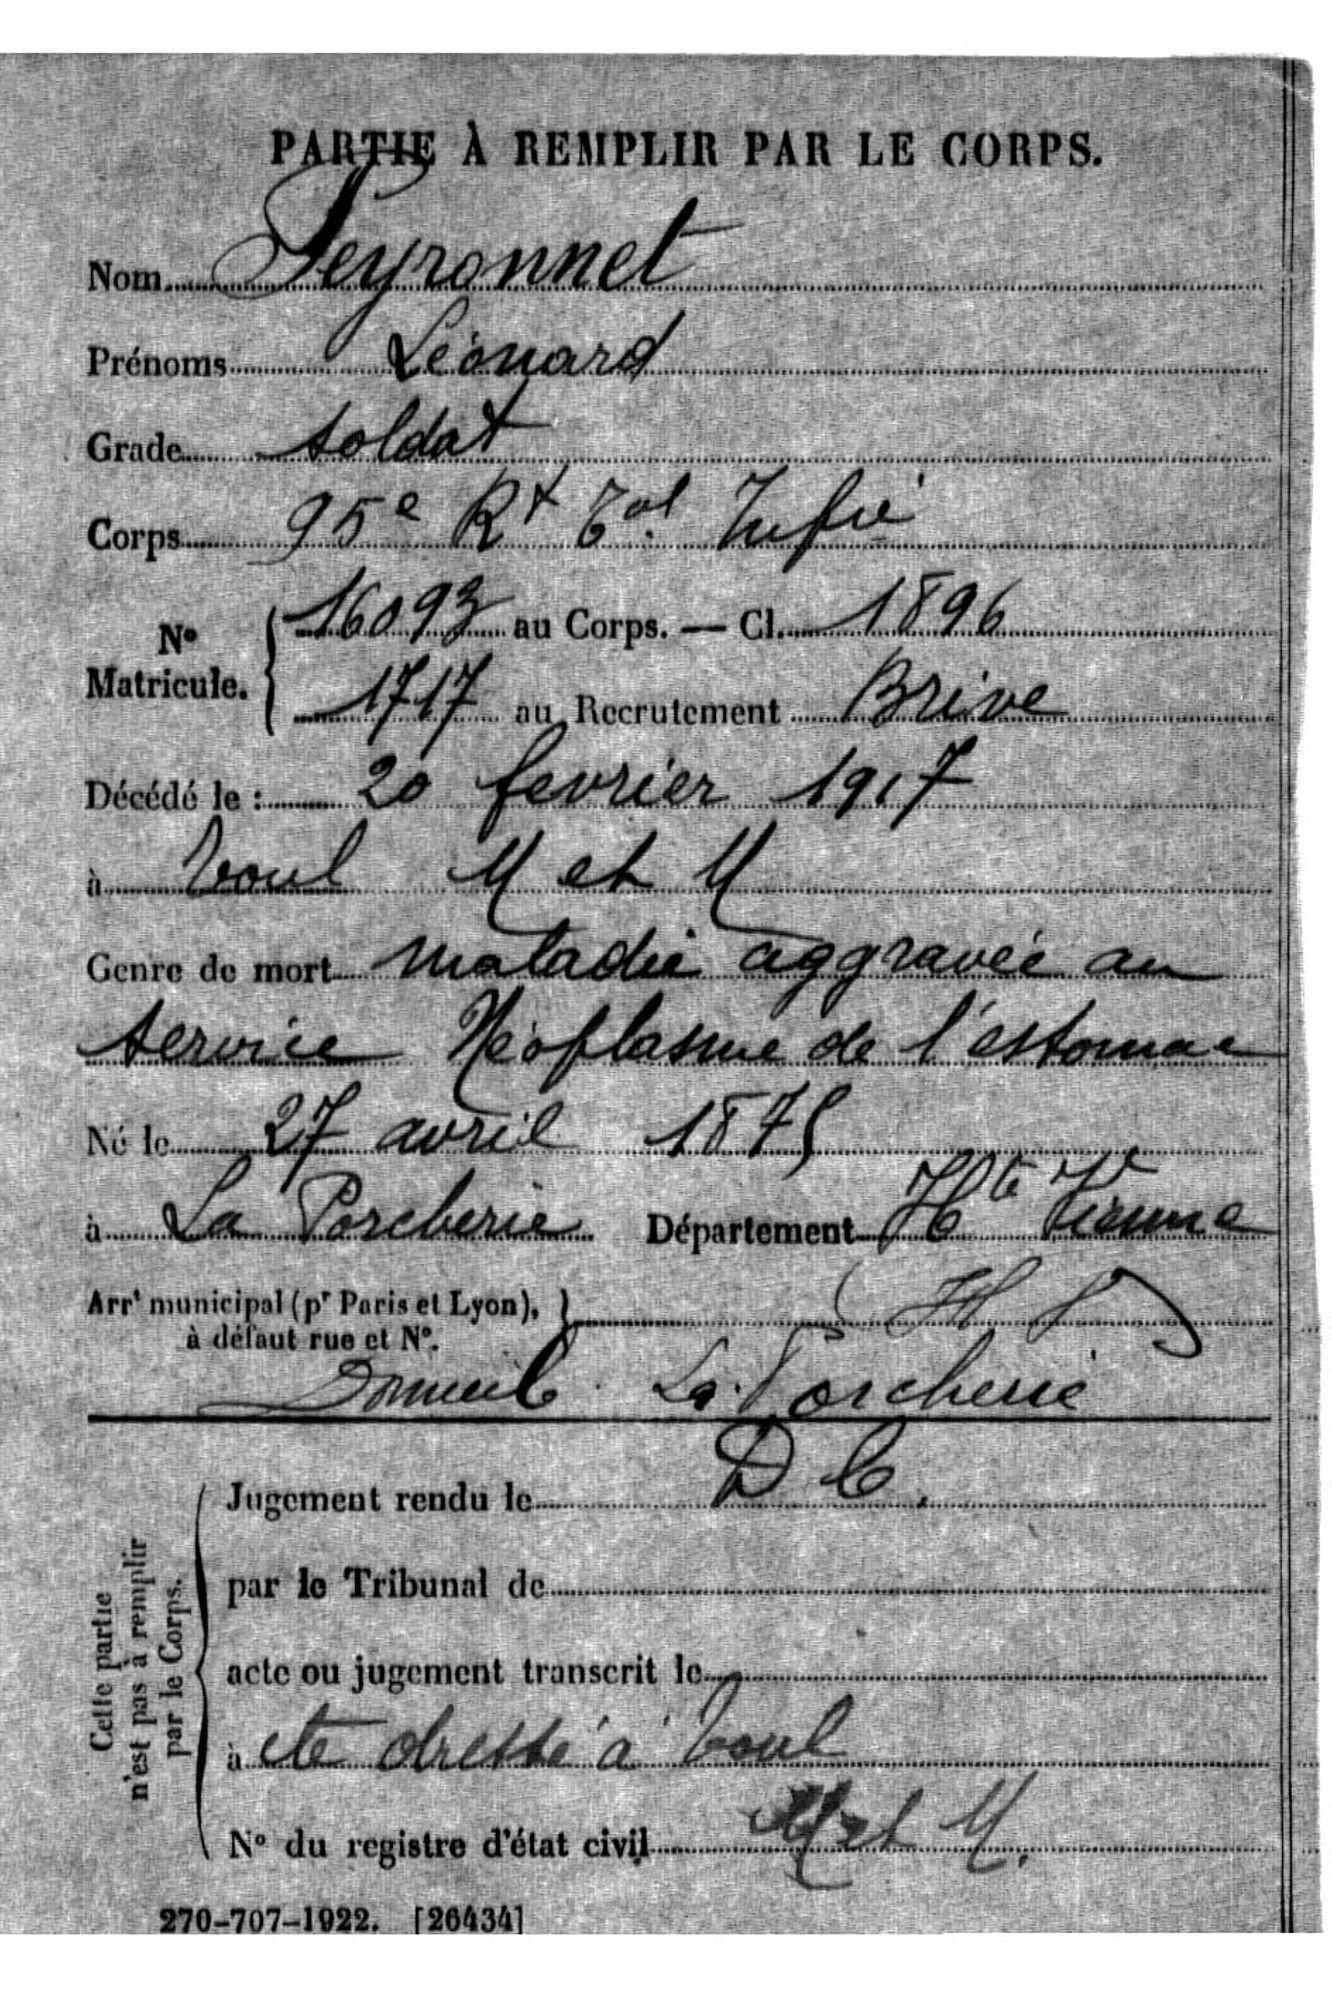 PARTIE À REMPLIR PAR LE CORPS.
Nom Peyronnet
Prénoms Léonard
Grade soldat
Corps 95e Rt Tal Infie
No Matricule. 16093 au Corps. — Cl. 1896
1717 au Recrutement Brive
Décédé le : 20 fevrier 1917
à Toul M et M
Genre de mort maladie aggravée au
service Néoplasme de l'estomac
Né le 27 avril 1875
à La Porcherie Département Hte Vienne
Arrt municipal (pr Paris et Lyon),
à défaut rue et No. H V
Domicile La Porcherie
Cette partie
n'est pas à remplir
par le Corps.
Jugement rendu le D C.
par le Tribunal de
acte ou jugement transcrit le
à cte dressé à Toul
No du registre d'état civil M et M.
270-707-1922. [26434]